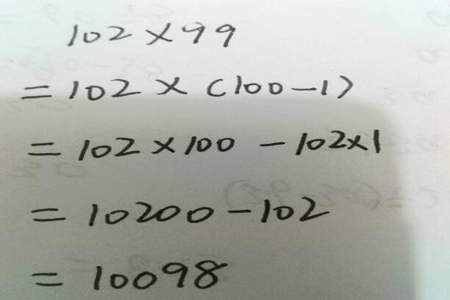 102×99
=102×(100-1)
=102×100-102×1
=10200-102
=10098